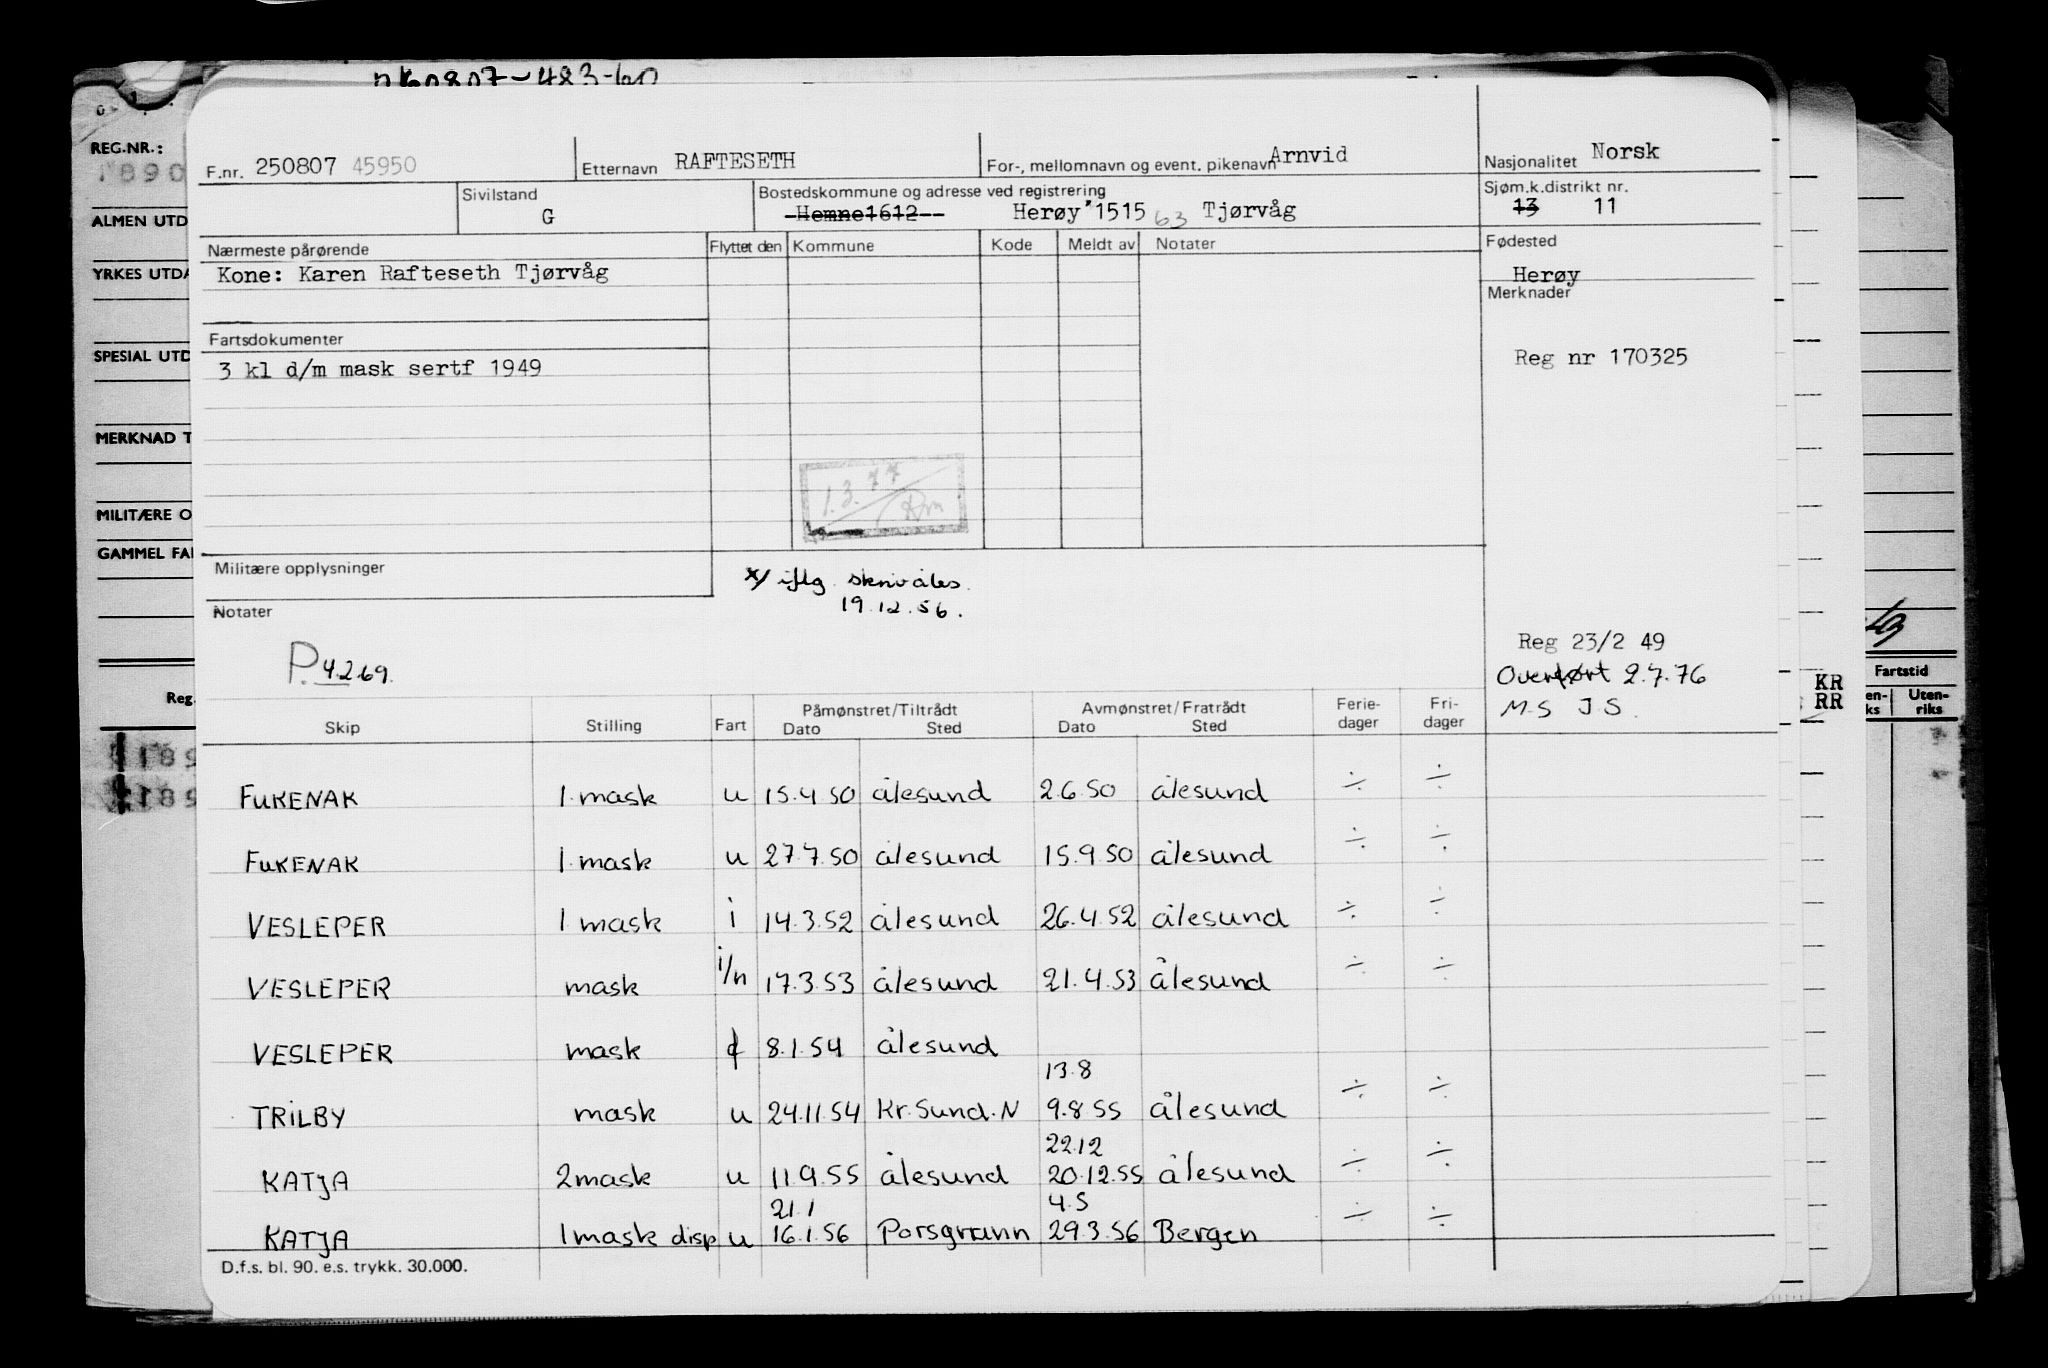 REG.NR.:
1890
ALMEN UTD
YRKES UTDA
SPESIAL UTD
MERKNAD T
MILITÆRE O
GAMMEL FA
Reg.
F.nr. 250807 45950
Etternavn RAFTESETH
For-, mellomnavn og event. pikenavn Arnvid
Nasjonalitet Norsk
Sivilstand
G
Bostedskommune og adresse ved registrering
Hemne1612-- Herøy 1515 63 Tjørvåg
Sjøm.k.distrikt nr.
13 11
Nærmeste pårørende
Kone: Karen Rafteseth Tjørvåg
Flyttet den Kommune Kode Meldt av Notater
Fødested
Herøy
Merknader
Fartsdokumenter
3 kl d/m mask sertf 1949
Reg nr 170325
1.3.77
Rm
Militære opplysninger
x/ iflg. skriv åles.
19.12.56.
Notater
P. 4.2.69.
Reg 23/2 49
Overført 2.7.76
M.S J.S.
Skip Stilling Fart Påmønstret/Tiltrådt Dato Sted Avmønstret/Fratrådt Dato Sted Ferie-dager Fri-dager
FUKENAK 1.mask u 15.4 50 ålesund 2.6.50 ålesund ÷ ÷
FUKENAK 1.mask u 27.7.50 ålesund 15.9.50 ålesund ÷ ÷
VESLEPER 1 mask i 14.3.52 ålesund 26.4.52 ålesund ÷ ÷
VESLEPER mask i/n 17.3.53 ålesund 21.4.53 Ålesund ÷ ÷
VESLEPER mask 8.1.54 ålesund
13.8
TRILBY mask u 24.11.54 Kr.Sund.N 9.8 55 ålesund ÷ ÷
22.12
KATJA 2mask u 11.9.55 ålesund 20.12.55 ålesund ÷ ÷
21.1 4.5
KATJA 1mask disp u 16.1.56 Porsgrunn 29.3.56 Bergen ÷ ÷
D.f.s. bl. 90. e.s. trykk. 30.000.
KR
RR
Fartstid
en-
ks
Uten-
riks